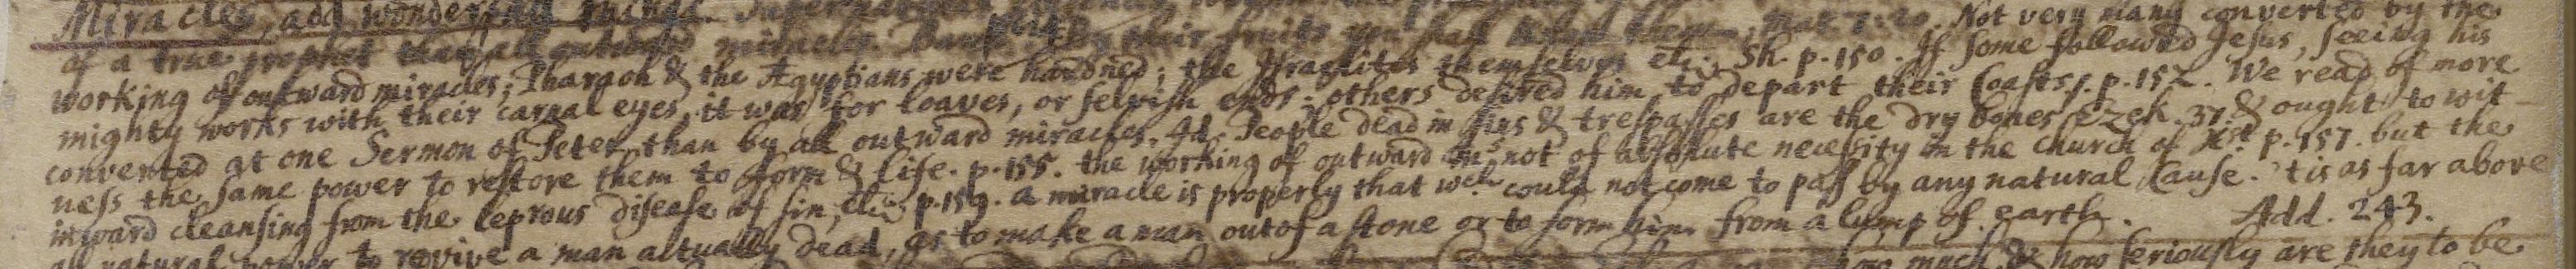 Miracles, and wonderful things.
of a true prophet than all outward miracles. by their fruits you shall know them, Mat. 7:20. Not very many converted by the
working of outward miracles; Pharaoh & the Ægyptians were hardned; the Israelites themselves etc. Sh. p. 150. If some followed Jesus, seeing his
mighty works with their carnal eyes, it was for loaves, or selvish ends: others desired him to depart their Coasts. p. 152. We read of more
converted at one Sermon of Peter, than by all outward miracles. Id. People dead in sins & trespasses are the dry bones Ezek. 37. & ought to wit-
ness the same power to restore them to form & life. p. 155. the working of outward ms. not of absolute necessity in the Church of Xst. p. 157. but the
inward cleansing from the leprous disease of sin, etc. p. 159. a miracle is properly that wch. could not come to pass by any natural Cause. 'tis as far above
natural power to revive a man actually dead, as to make a man out of a stone or to form him from a lump of earth. Add. 243.
much & how seriously are they to be